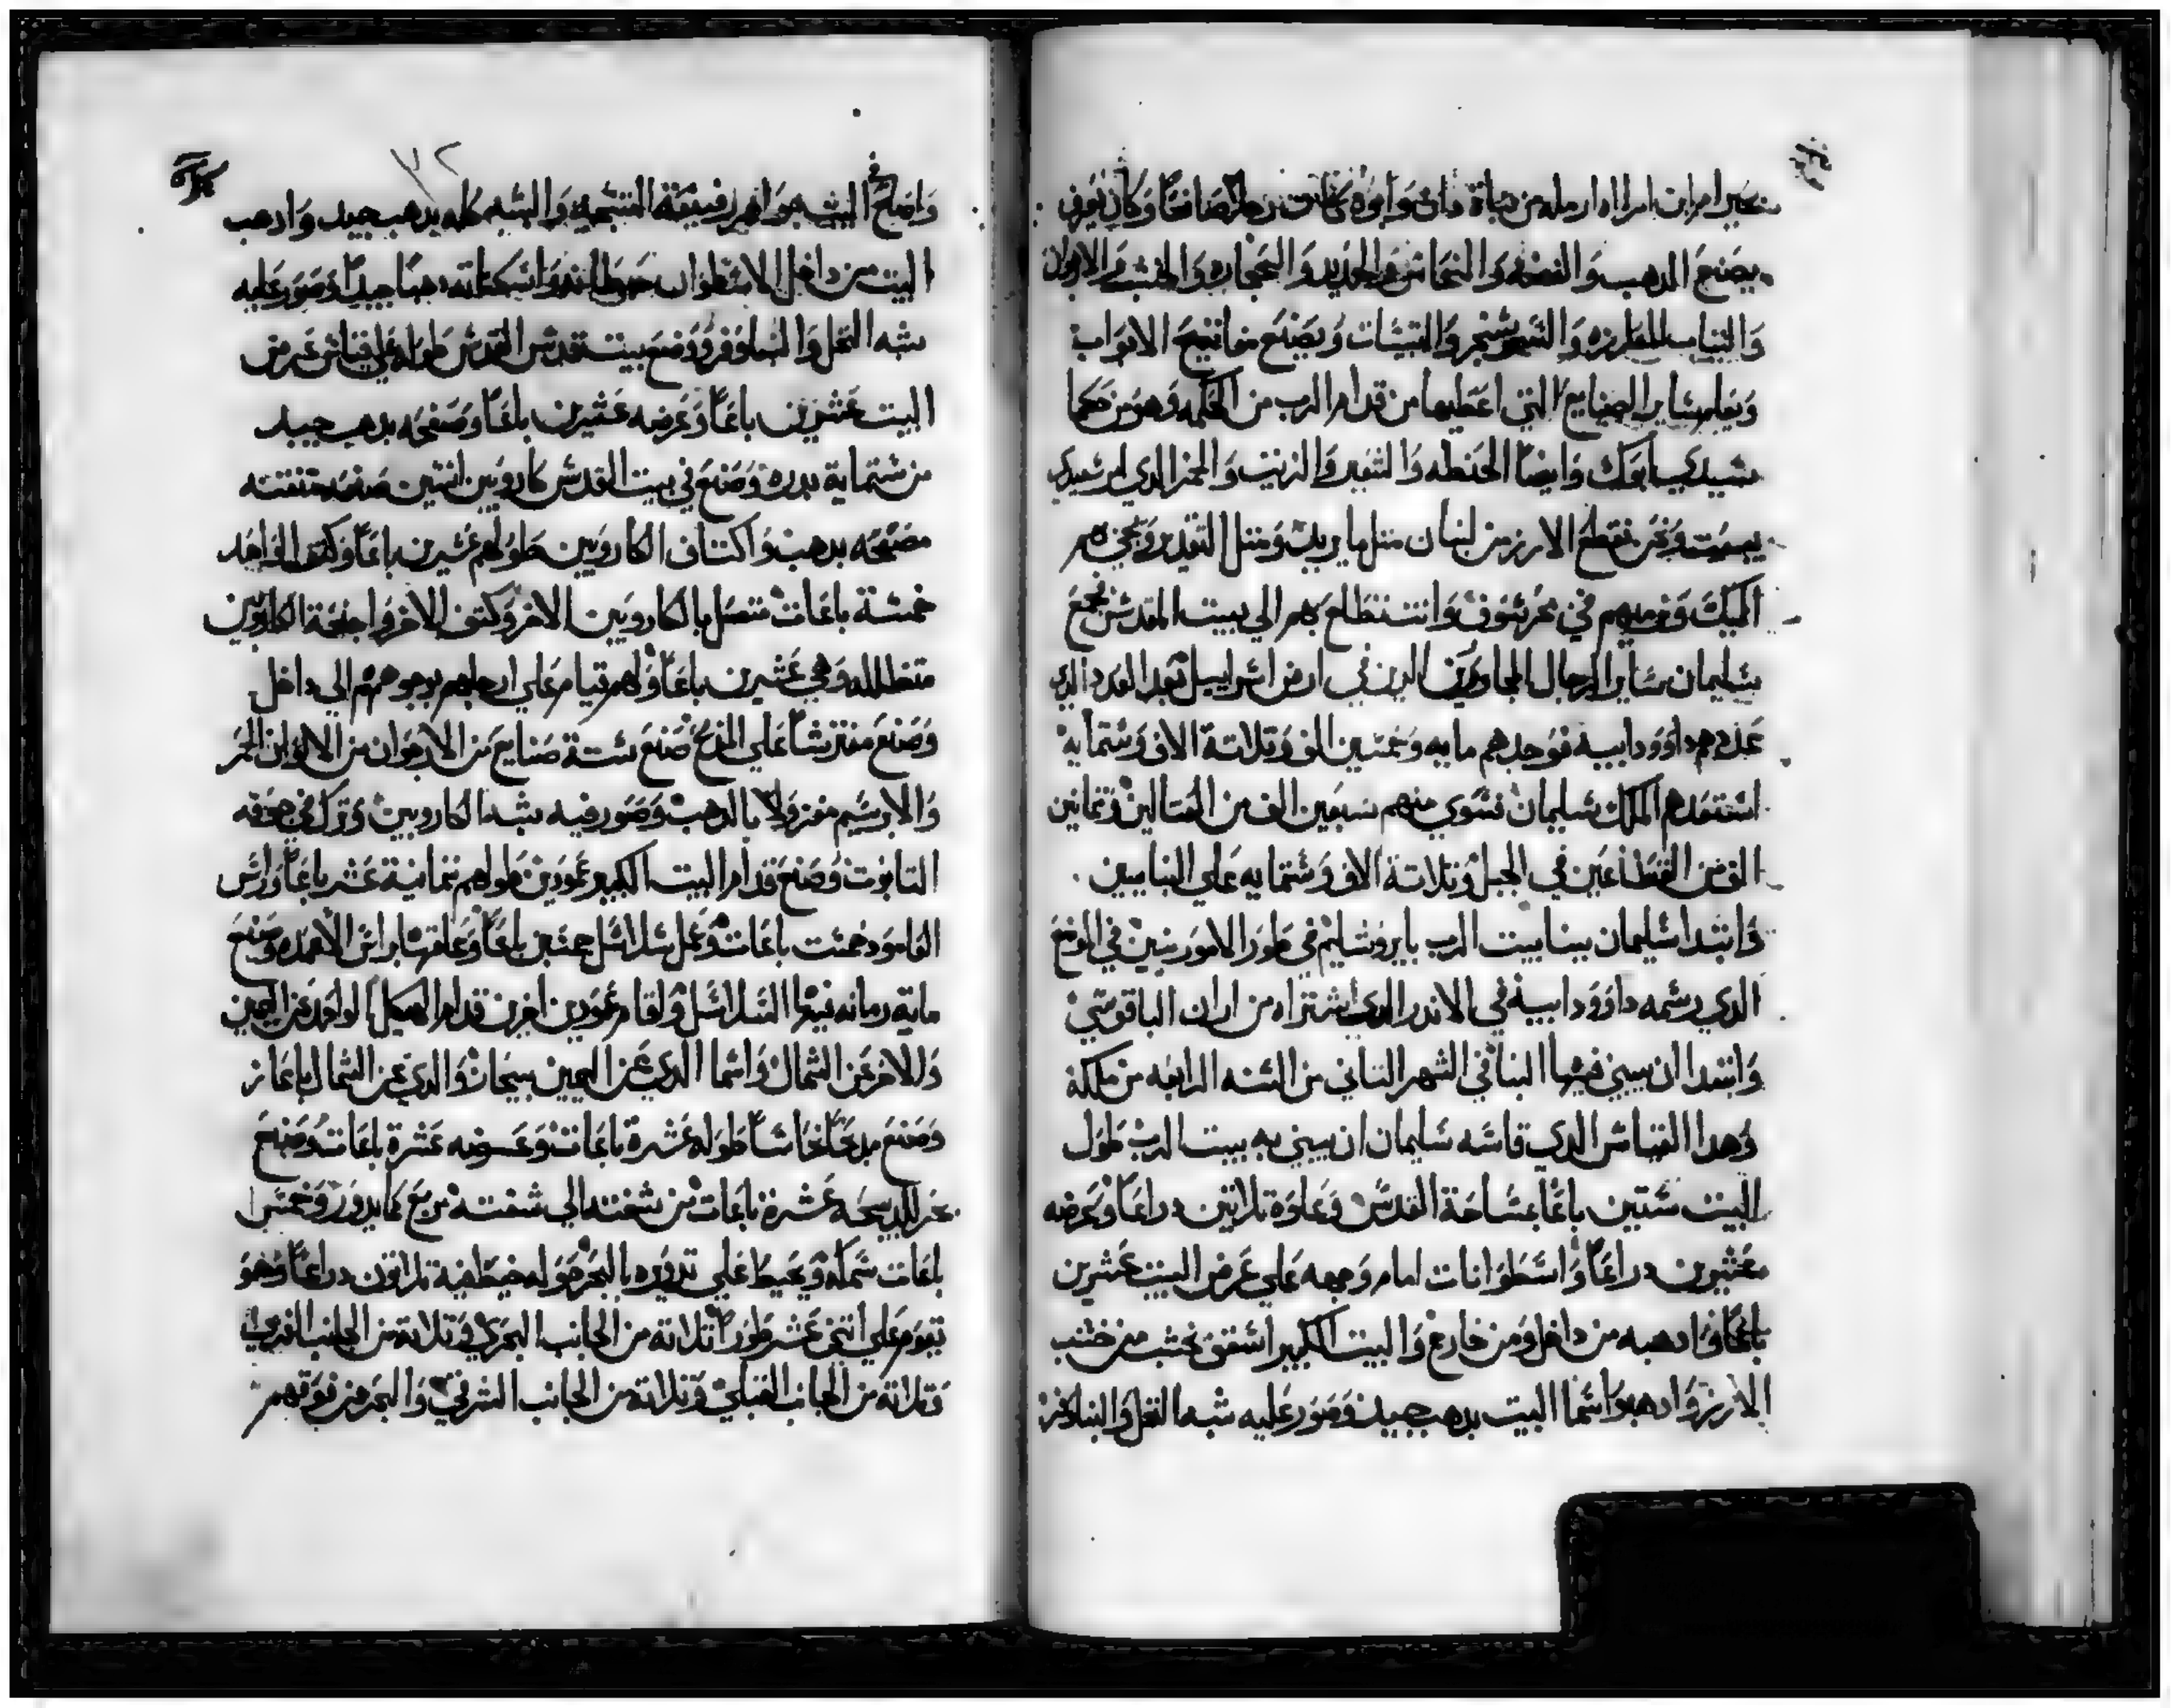 يصنع الدهب والفضه والنحاس والحديد والحجاره والخشب والارجوان
والتياب المطرزه ويصنع مفاتيح الابواب
ويعلم ساير الصنايع التي اعطيها من قدام الرب من الحكمه وهو من حكما
سيدي ابوك وايضا الحنطه والشعير والزيت والخمر الدي امر سيدي
ونحن نقطع الارز من لبنان متل ما يريد ومتل التقدير ونجي بهم
اليك في بحر سوف وانت تطلع بهم الي بيت المقدس فجمع
سليمان ساير الرجال المجاورين الدين في ارض اسراييل بعد العدد الدي
عددهم داوود ابيه فوجدهم مايه وخمسين الف وتلاتة الاف وستمايه
استعدهم الملك سليمان فسوي منهم سبعين الف من العتالين وتمانين
الف من القطاعين في الجبل وتلاتة الاف وستمايه علي البنايين
وابتدا سليمان ببنا بيت الرب بايروشليم في طور الامورينين في الموضع
الدي رسمه داوود ابيه في الاندر الدي اشتراه من اران الياقوسي
وابتدا ان يبني فيها البنا في الشهر التاني من السنه الرابعه من ملكه
وهدا القياس الدي قاسه سليمان ان يبني به بيت الرب طول
البيت ستين باعا بمساحة القدس وعلوه تلاتين دراعا وعرضه
عشرين دراعا واسطوانات امام وجهه علي عرض البيت عشرين
باعا وادهبه من داخل ومن خارج والبيت الكبير اسقف بخشب من خشب
الارز وادهبوا سما البيت بدهب جيد وصور عليه شبه النخل والنيلوفر
واصلح البيت بجواهر كله بدهب جيد وادهب
البيت من داخل الاسطوان دهبا جيدا وصور عليه
شبه النخل والنيلوفر ووضع بيت قدس القدس طوله علي قياس عرض
البيت عشرين باعا وعرضه عشرين باعا وصفحه بدهب جيد
من ستماية بدره وصنع في بيت القدس كاروبين اتنين صنعه متقنه
مصفحه بدهب واكتاف الكاروبين طولهم عشرين باعا وكتف الواحد
خمسة باعات متصل بالكاروبين الاخر وكتف الاخر واجنحة الكاروبين
متظلله وهي عشرين باعا ولهم قيام علي ارجلهم بوجوههم الي داخل
وصنع صنع ستة صنايع من الارجوان من الالوان الحمر
والابرسيم مغزولا بالدهب وصور فيه شبه الكاروبين وترك في جوفه
التابوت وصنع قدام البيت الكبير عمودين طولهم تمانية عشر باعا وراس
العامود خمست باعات وعمل سلاسل خمسين باعا وعلقها براس الاعمده وصنع
ماية رمانه السلاسل واقام عمودين اخرين قدام الهيكل الواحد عن اليمين
والاخر عن الشمال واسما الدي عن اليمين سيحان والدي عن الشمال باعاز
وصنع مدبحا نحاسا طوله عشرة باعات وعرضه عشرة باعات وصنع
عشرة باعات من شفته الي شفته مربع كما يدور وخمس
باعات سمكه ويحيط علي تدويره بالبحر حوله خيط فيه تلاتون دراعا وهو
يقوم علي اتني عشر طورا تلاته من الجانب البحري وتلاتة من الجانب الغربي
وتلاتة من الجانب القبلي وتلاته من الجانب الشرقي والبحر من فوقهم